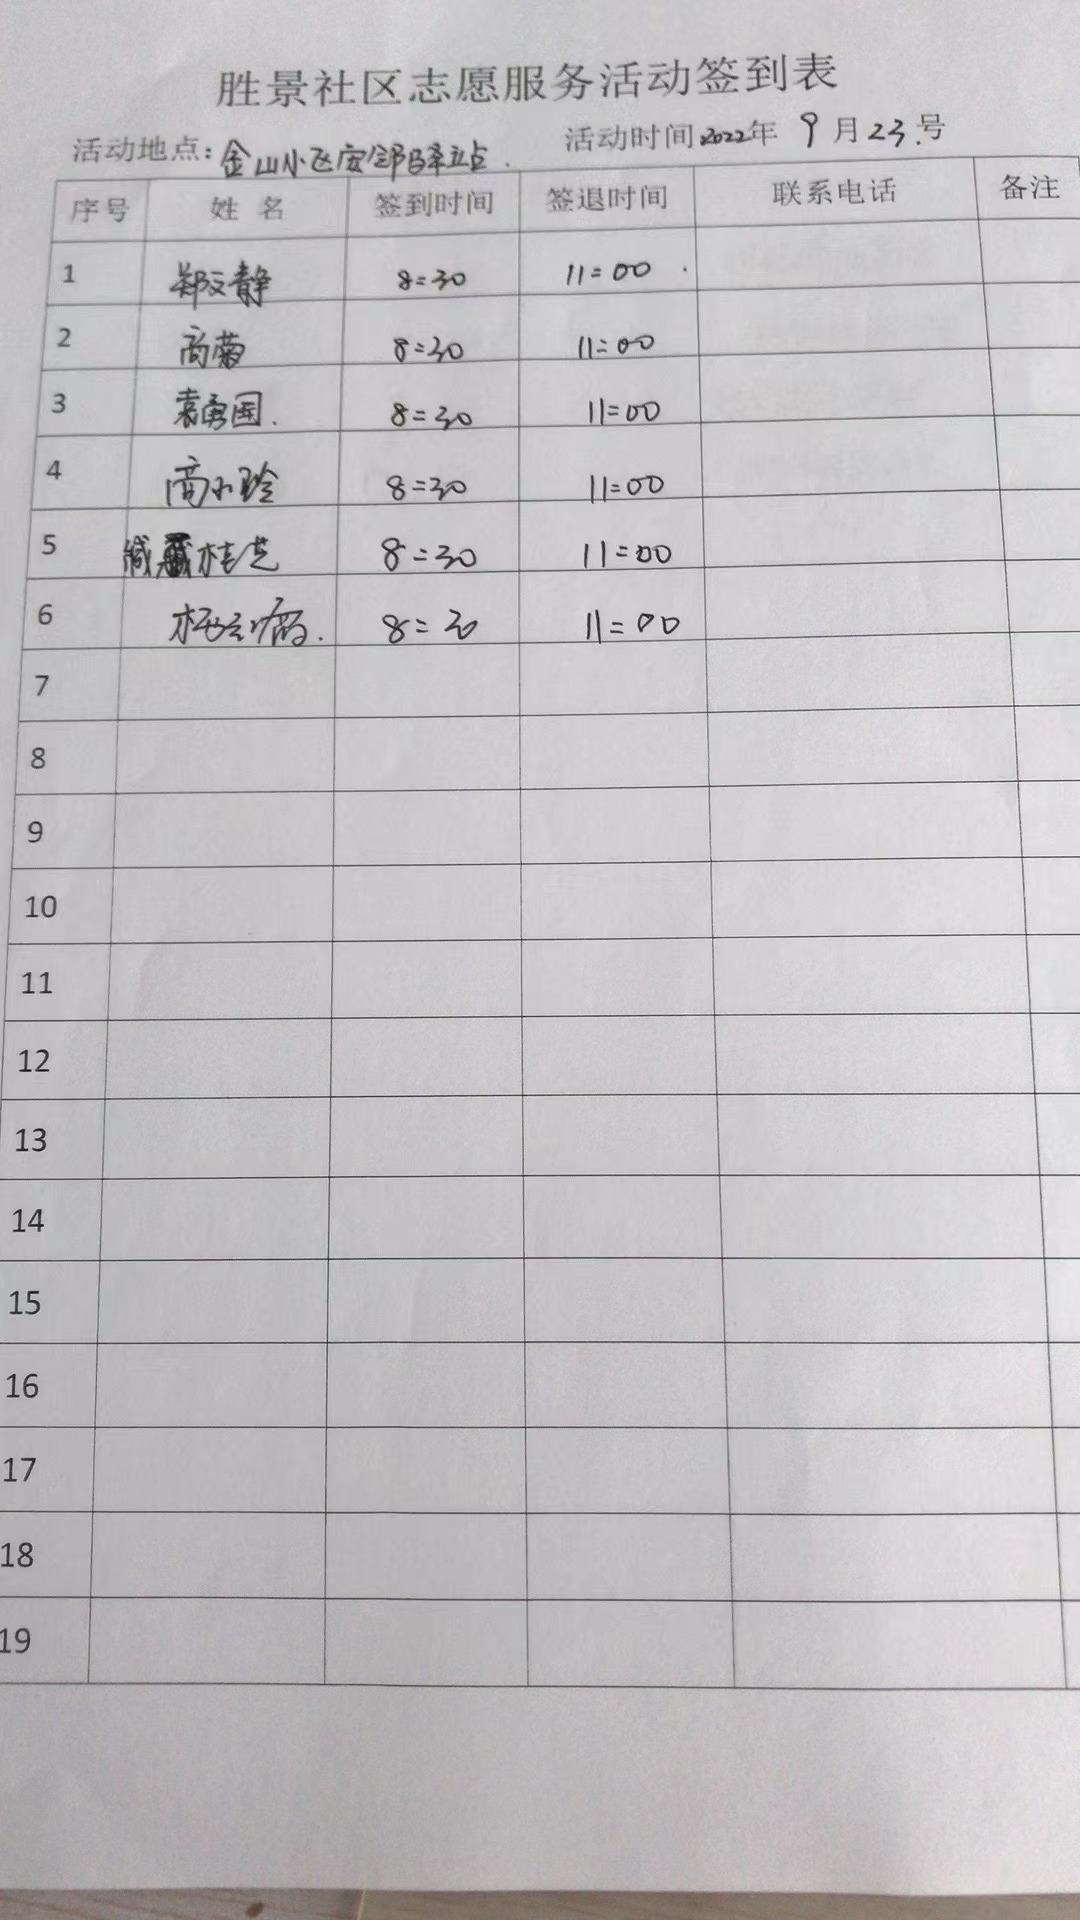 胜景社区志愿服务活动签到表
活动地点:金山小区安邻驿站. 活动时间2022年 9月23.号
序号 姓 名 签到时间 签退时间 联系电话 备注
1 郑文静 8:30 11:00
2 高菊 8:30 11:00
3 袁勇国. 8:30 11:00
4 高小玲 8:30 11:00
5 桂芝 8:30 11:00
6 8:30 11:00
7
8
9
10
11
12
13
14
15
16
17
18
19